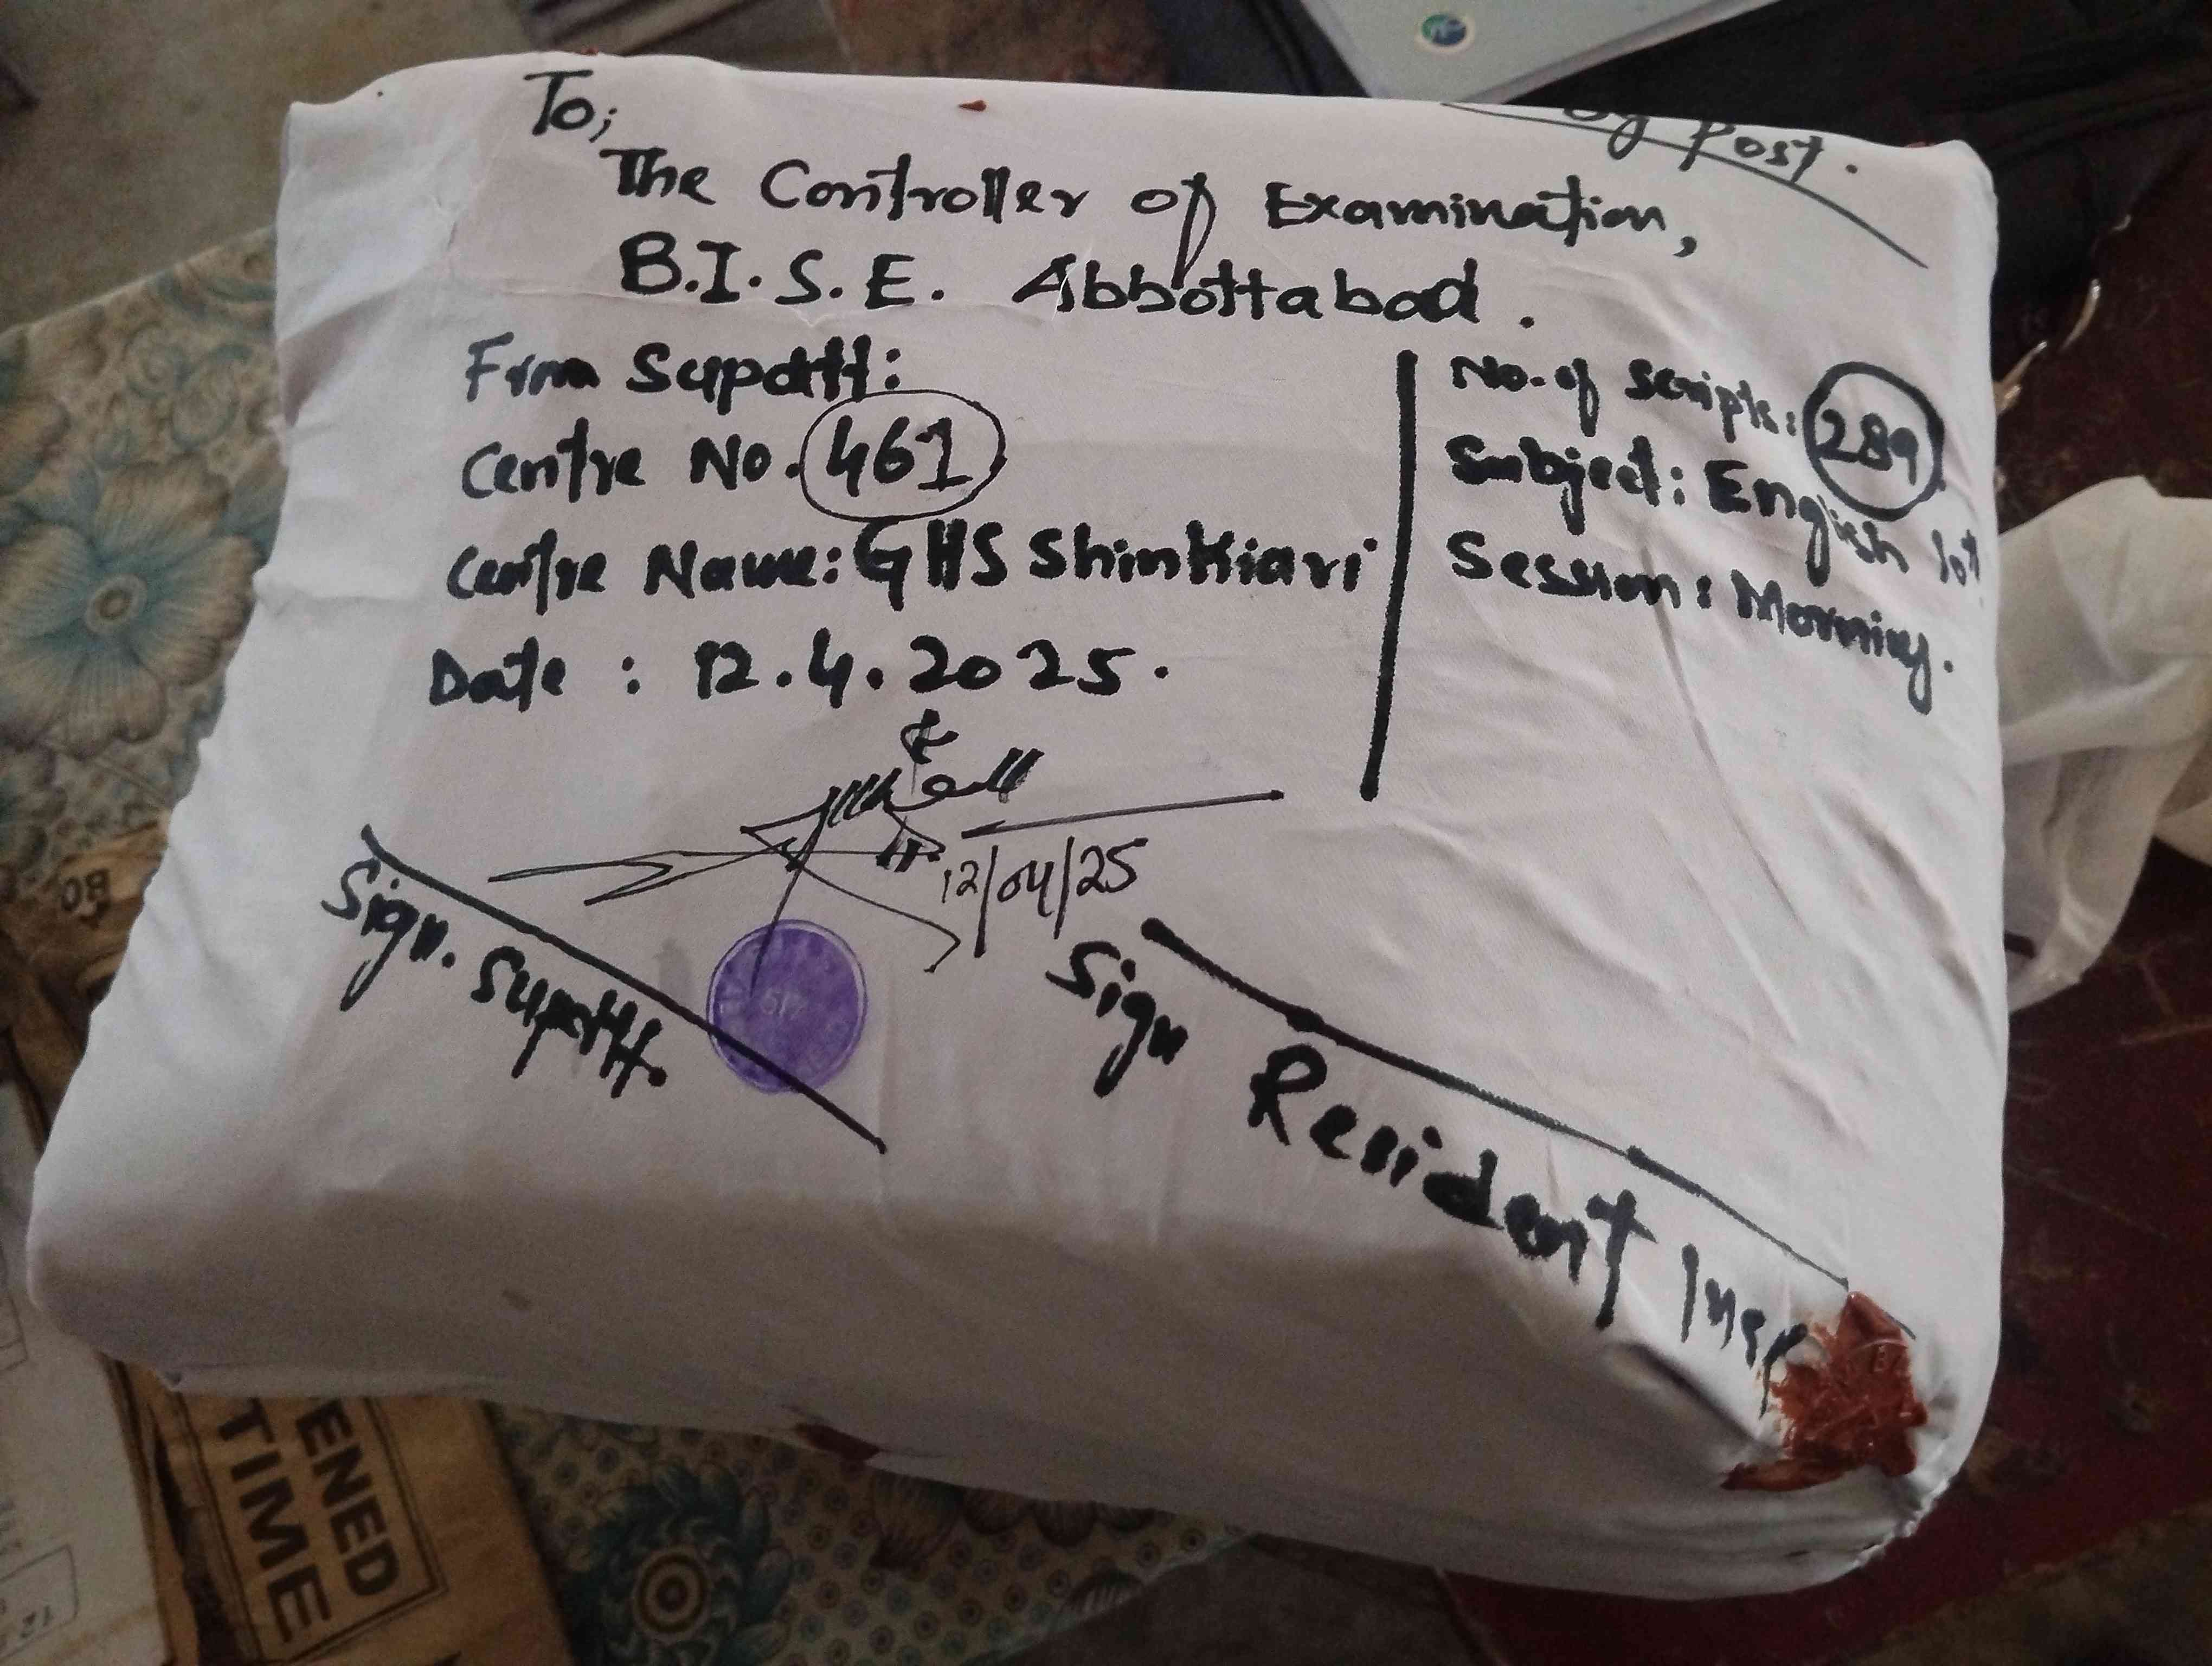 By Post.
To;
The Controller of Examination,
B.I.S.E. Abbottabad.
From Supdtt:
Centre No. 461
Centre Name: GHS Shinkiari
Date : 12.4.2025.
No. of Scripts: 289
Subject: English 10th
Session: Morning.
12/04/25
Sign. Supdtt.
Sign Resident Insp
ENED
TIME